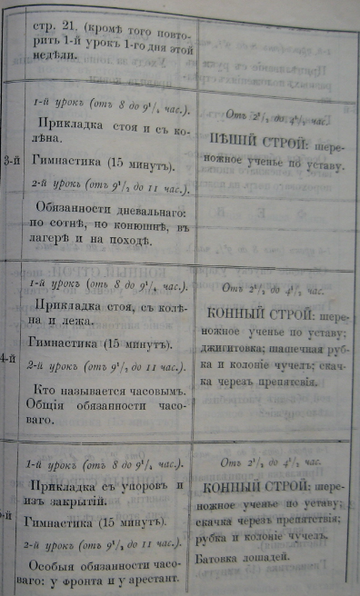 стр. 21. (кромѣ того повто-
рить 1-й урокъ 1-го дня этой
недѣли.
1-й урокъ (отъ 8 до 9¹/₂ час.).
Прикладка стоя и съ ко-
лѣна.
3-й Гимнастика (15 минутъ).
2-й урокъ (отъ 9¹/₂ до 11 час.).
Обязанности дневальнаго:
по сотнѣ, по конюшнѣ, въ
лагерѣ и на походѣ.
Отъ 2¹/₂ до 4¹/₂ час.
ПѢШІЙ СТРОЙ: шере-
ножное ученье по уставу.
1-й урокъ (отъ 8 до 9¹/₂ час.).
Прикладка стоя, съ колѣ-
на и лежа.
Гимнастика (15 минутъ).
4-й
2-й урокъ (отъ 9¹/₂ до 11 час.).
Кто называется часовымъ.
Общія обязанности часо-
ваго.
Отъ 2¹/₂ до 4¹/₂ час.
КОННЫЙ СТРОЙ: шере-
ножное ученье по уставу;
джигитовка; шашечная руб-
ка и колоніе чучелъ; скач-
ка черезъ препятсвія.
1-й урокъ (отъ 8 до 9¹/₂ час.).
Прикладка съ упоровъ и
изъ закрытій.
Гимнастика (15 минутъ).
2-й урокъ (отъ 9¹/₂ до 11 час.).
Особыя обязанности часо-
ваго: у фронта и у арестант.
Отъ 2¹/₂ до 4¹/₂ час.
КОННЫЙ СТРОЙ: шере-
ножное ученье по уставу;
скачка черезъ препятствія;
рубка и колоніе чучелъ.
Батовка лошадей.